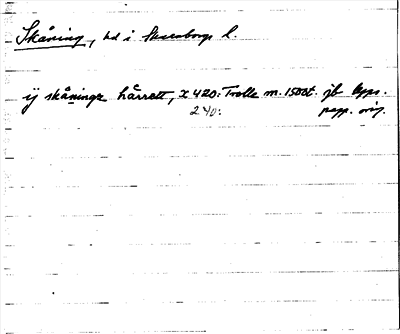 Skåning, hd i Skaraborgs l.
ij skåninge hårrett, x 420: Trolle m. 1500t. jb kps.
240: papp. orig.